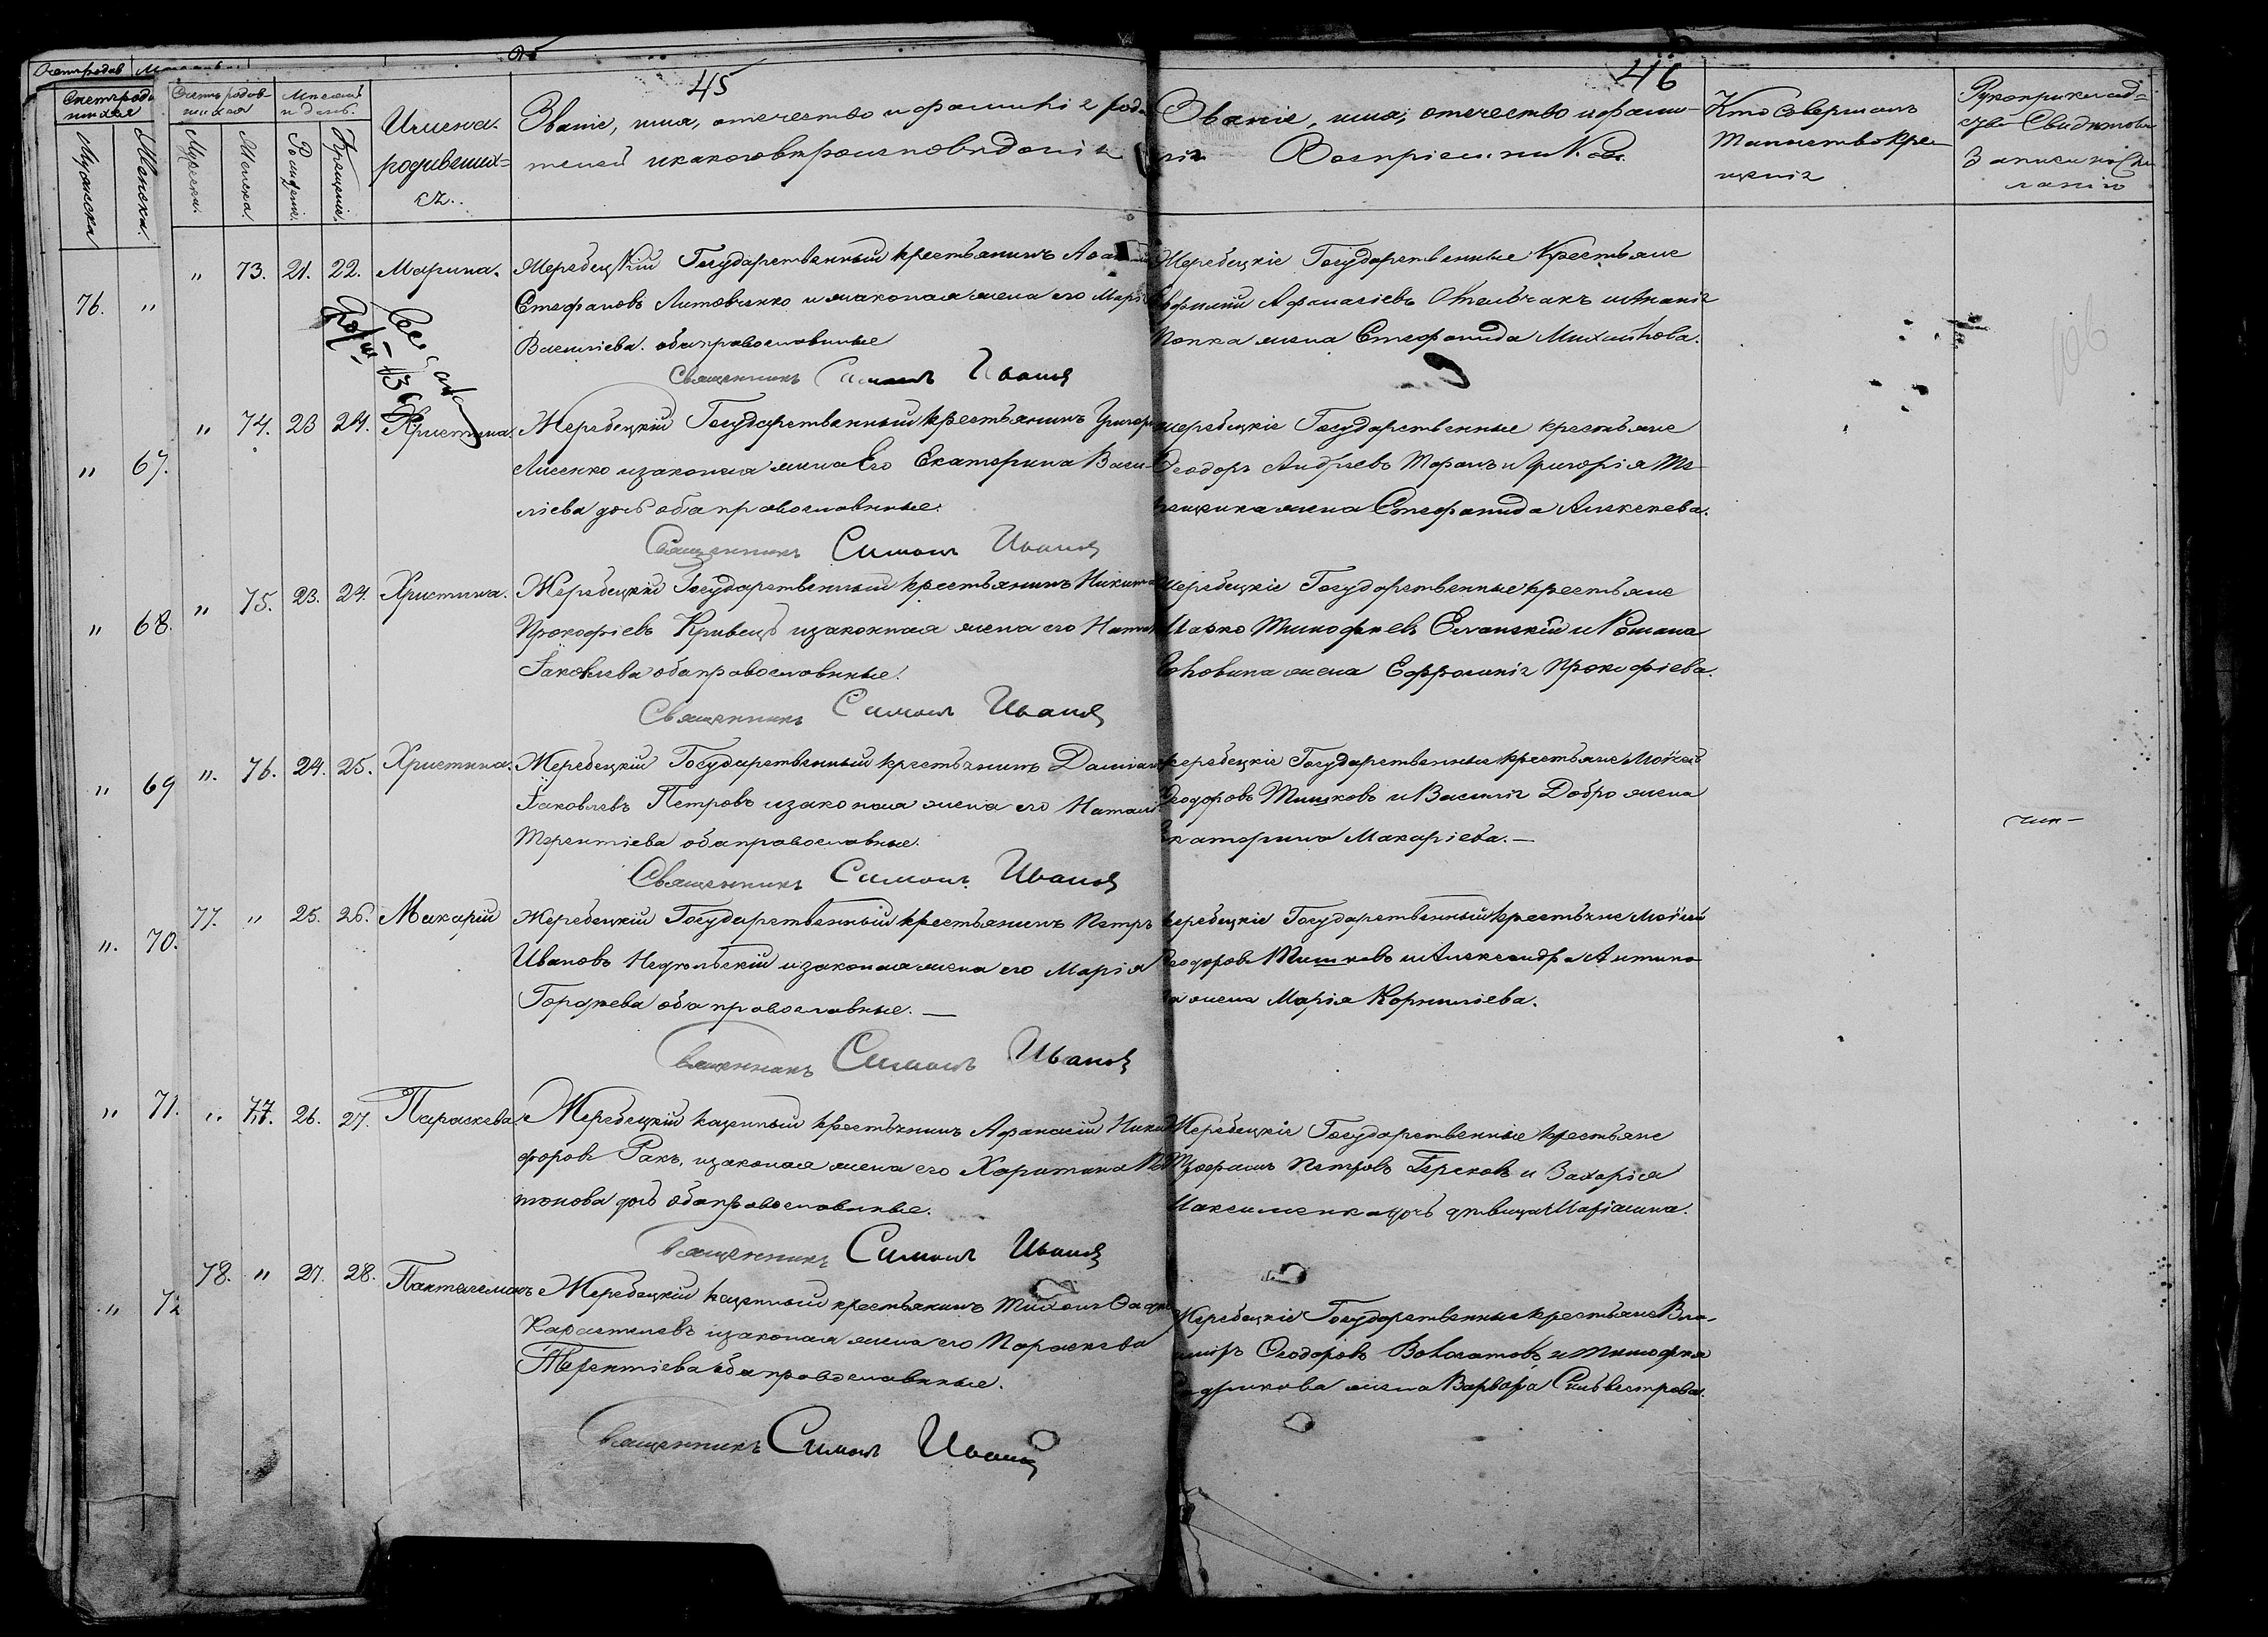 45
46
Счетъ родив-
шихся
Мѣсяцъ
и день.
Мужеска.
Женска.
Рожденіе.
Крещеніе.
Имена
родивших=
ся..
Званіе, имя, отечество и фамилія роди
телей и какого вѣроисповѣданія
Званіе, имя, отечество и фами-
лія Воспріемниковъ.
Кто совершалъ
таинство кре-
щенія
Рукоприклад=
записи по же
ланію
Мужеска
Женска.
76. "
" 67.
" 68.
" 69
". 70.
" 71.
" 72
" 73. 21. 22. Марина.
Жеребецкій Государственный крестьянинъ
Стефановъ Литовченко и законная жена его Марі
Василіева. оба православные
Священникъ Симеонъ Іванов
Жеребецкіе Государственные Крестьяне
Афанасіевъ
жена Стефанида Михайлова.
" 74. 23 24. Христина.
Жеребецкій Государственный крестьянинъ Григор
Лисенко и законная жена Его Екатерина Васи-
ліева дочь оба православные.
Священникъ Симеонъ Иванов
жеребецкіе Государственные крестьяне
Феодоръ Андреевъ Таранъ и Григорія
жена Стефанида Алексеева.
" 75. 23. 24. Христина.
Жеребецкій Государственный крестьянинъ Никита
Прокофіевъ Кривецъ и законная жена его Натал
Іаковлева оба православные.
Священникъ Симеонъ Иванов
жеребецкіе Государственные крестьяне
Марко Тимофеевъ и Романа
жена Ефросинія Прокофіева.
". 76. 24. 25. Христина.
Жеребецкій Государственный крестьянинъ Даміанъ
Іаковлевъ Петровъ и законная жена его Наталі
Терентіева оба православные.
Священникъ Симеонъ Иванов
жеребецкіе Государственные крестьяне Моѵсей
Феодоровъ Тишковъ и Василія Добро жена
Екатерина Макаріева. —
77. " 25. 26. Макарій
Жеребецкій Государственный крестьянинъ Петръ
Ивановъ Недѣльскій и законная жена его Марія
Гордеева оба православные. —
Священникъ Симеонъ Иванов
жеребецкіе Государственный крестьяне Моѵсей
Феодоровъ Тишковъ и Александра Антипо
ва жена Марія Корниліева.
" 77. 26. 27. Параскева
Жеребецкій казенный крестьянинъ Афанасій Ники
форовъ Ракъ, и законная жена его Харитина Пла
тонова дочь оба православные.
Священникъ Симеонъ Иванов
Жеребецкіе Государственные крестьяне
Трофимъ Петровъ и Захарія
Максименка дочь дѣвица Маріамна.
78. " 27. 28. Пантелемонъ
Жеребецкій казенный крестьянинъ Тихонъ
Карастелевъ и законная жена его Параскева
Терентіева оба православные.
Священникъ Симеонъ Иванов
Жеребецкіе Государственные крестьяне Вла-
димиръ Феодоровъ Волосатовъ и Тимофея
жена Варвара Сильвестрова.